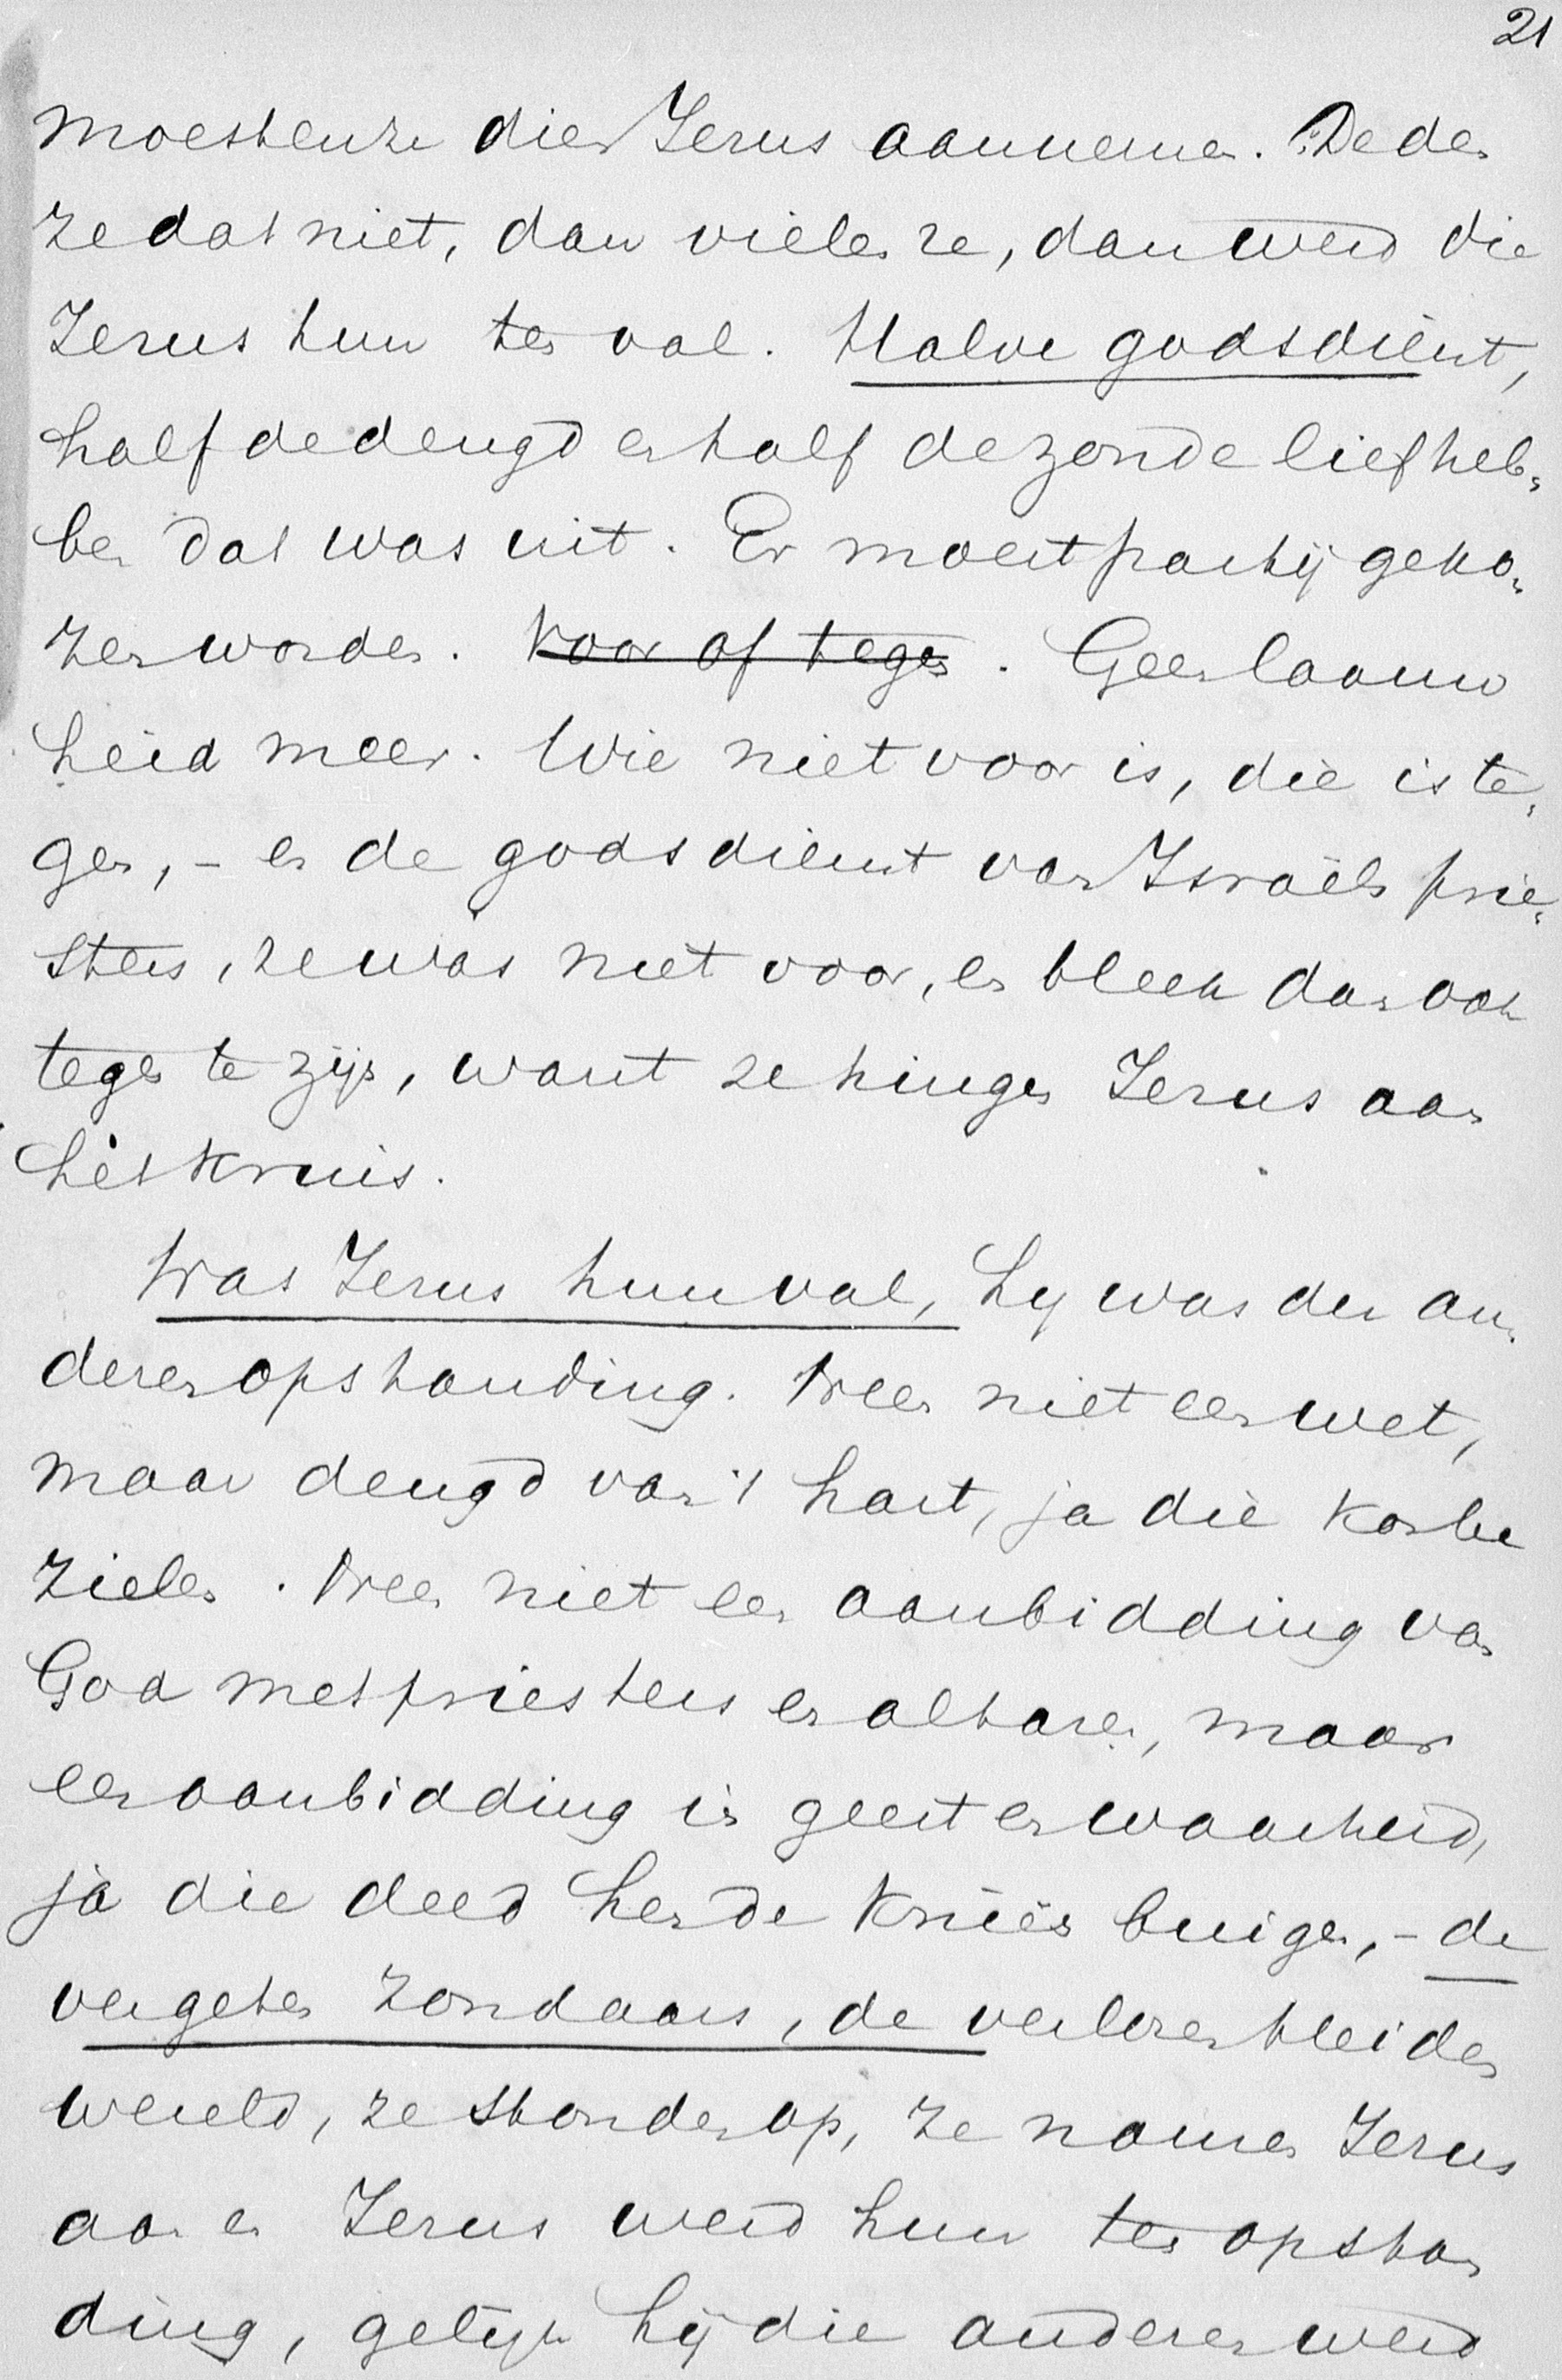 21
moesten ze dien Jezus aannemen. Deden
ze dat niet, dan vielen ze, dan werd die
Jezus hun ten val. Halve godsdienst,
half de deugd en half de zonde liefheb-
ben dat was uit. Er moest partij geko-
zen worden. Voor of tegen. Geen laauw
heid meer. Wie niet voor is, die is te-
gen, – en de godsdienst van Israëls prie-
sters, ze was niet voor, en bleek dan ook
tegen te zijn, want ze hingen Jezus aan
het kruis.
Was Jezus hun val, hij was der an-
deren opstanding. Neen niet een wet,
maar deugd van 't hart, ja die kon be
zielen. Neen niet een aanbidding van
God met priesters en altaren, maar
een aanbidding in geest en waarheid,
ja die deed hen de knieën buigen, – de
vergeten zondaars, de verloren heiden
wereld, ze stonden op, ze namen Jezus
aan en Jezus werd hun ten opstan
ding, gelijk hij die anderen werd